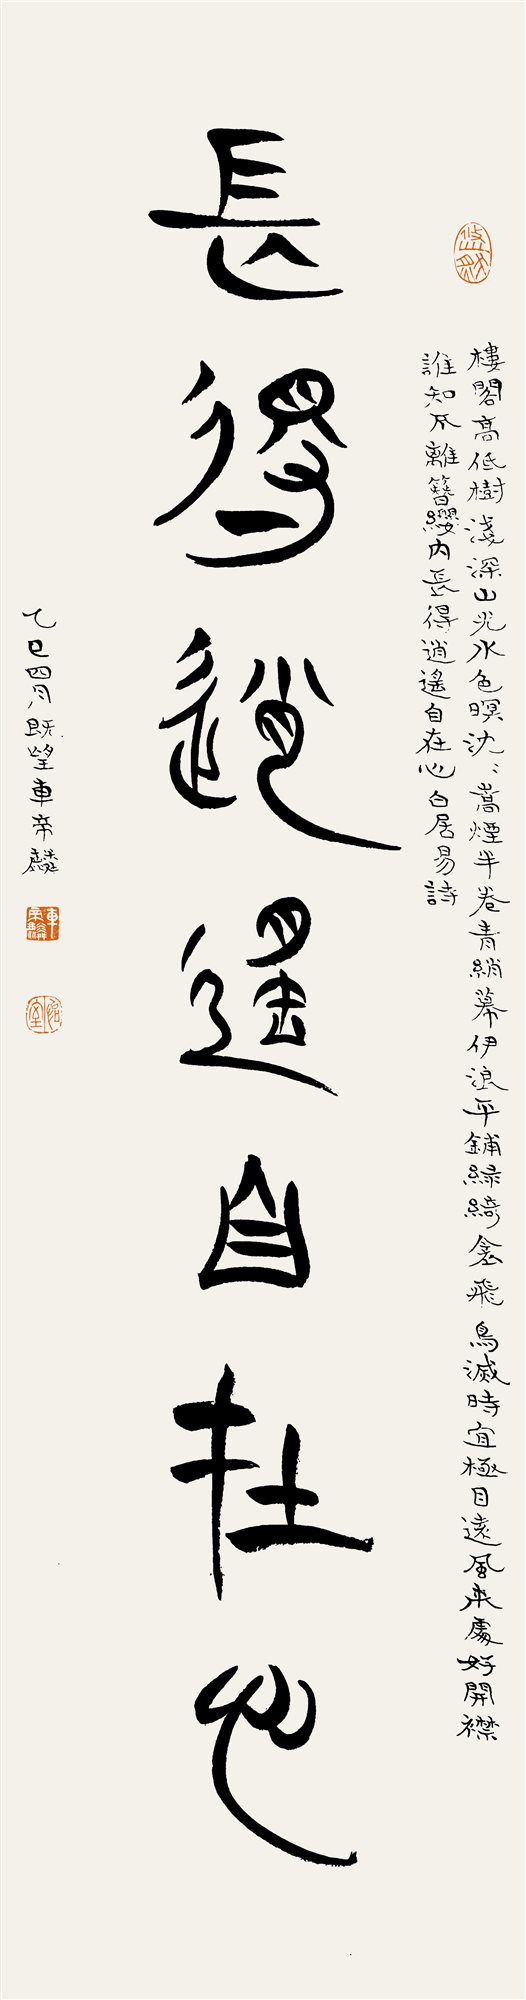 悠然
樓閣高低樹淺深山光水色暝沈〻嵩煙半卷青綃幕伊浪平鋪綠綺衾飛鳥滅時宜極目遠風來處好開襟
誰知不離簪纓內長得逍遙自在心白居易詩
長得逍遙自在心
乙巳四月既望車帝麟